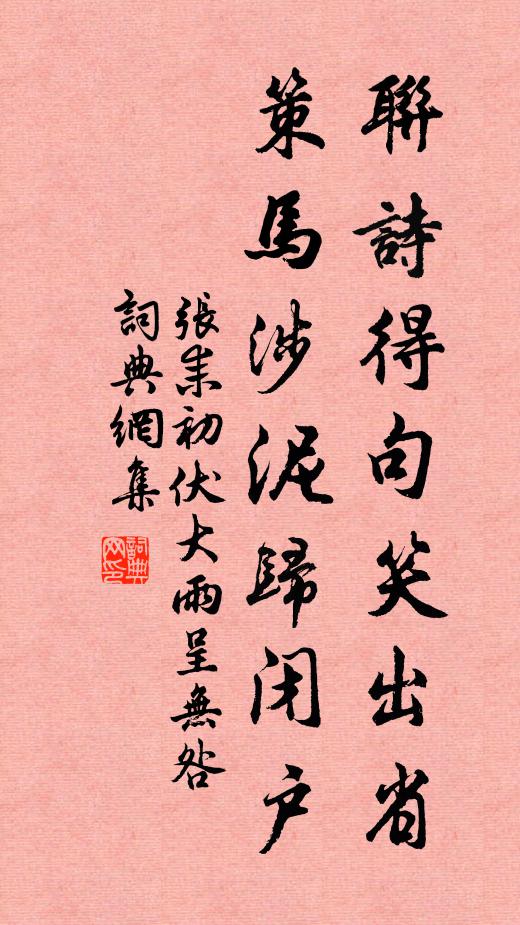 聯詩得句笑出省
策馬涉泥歸閉戶
張耒初伏大雨呈無咎
詞典網集
詞典网印